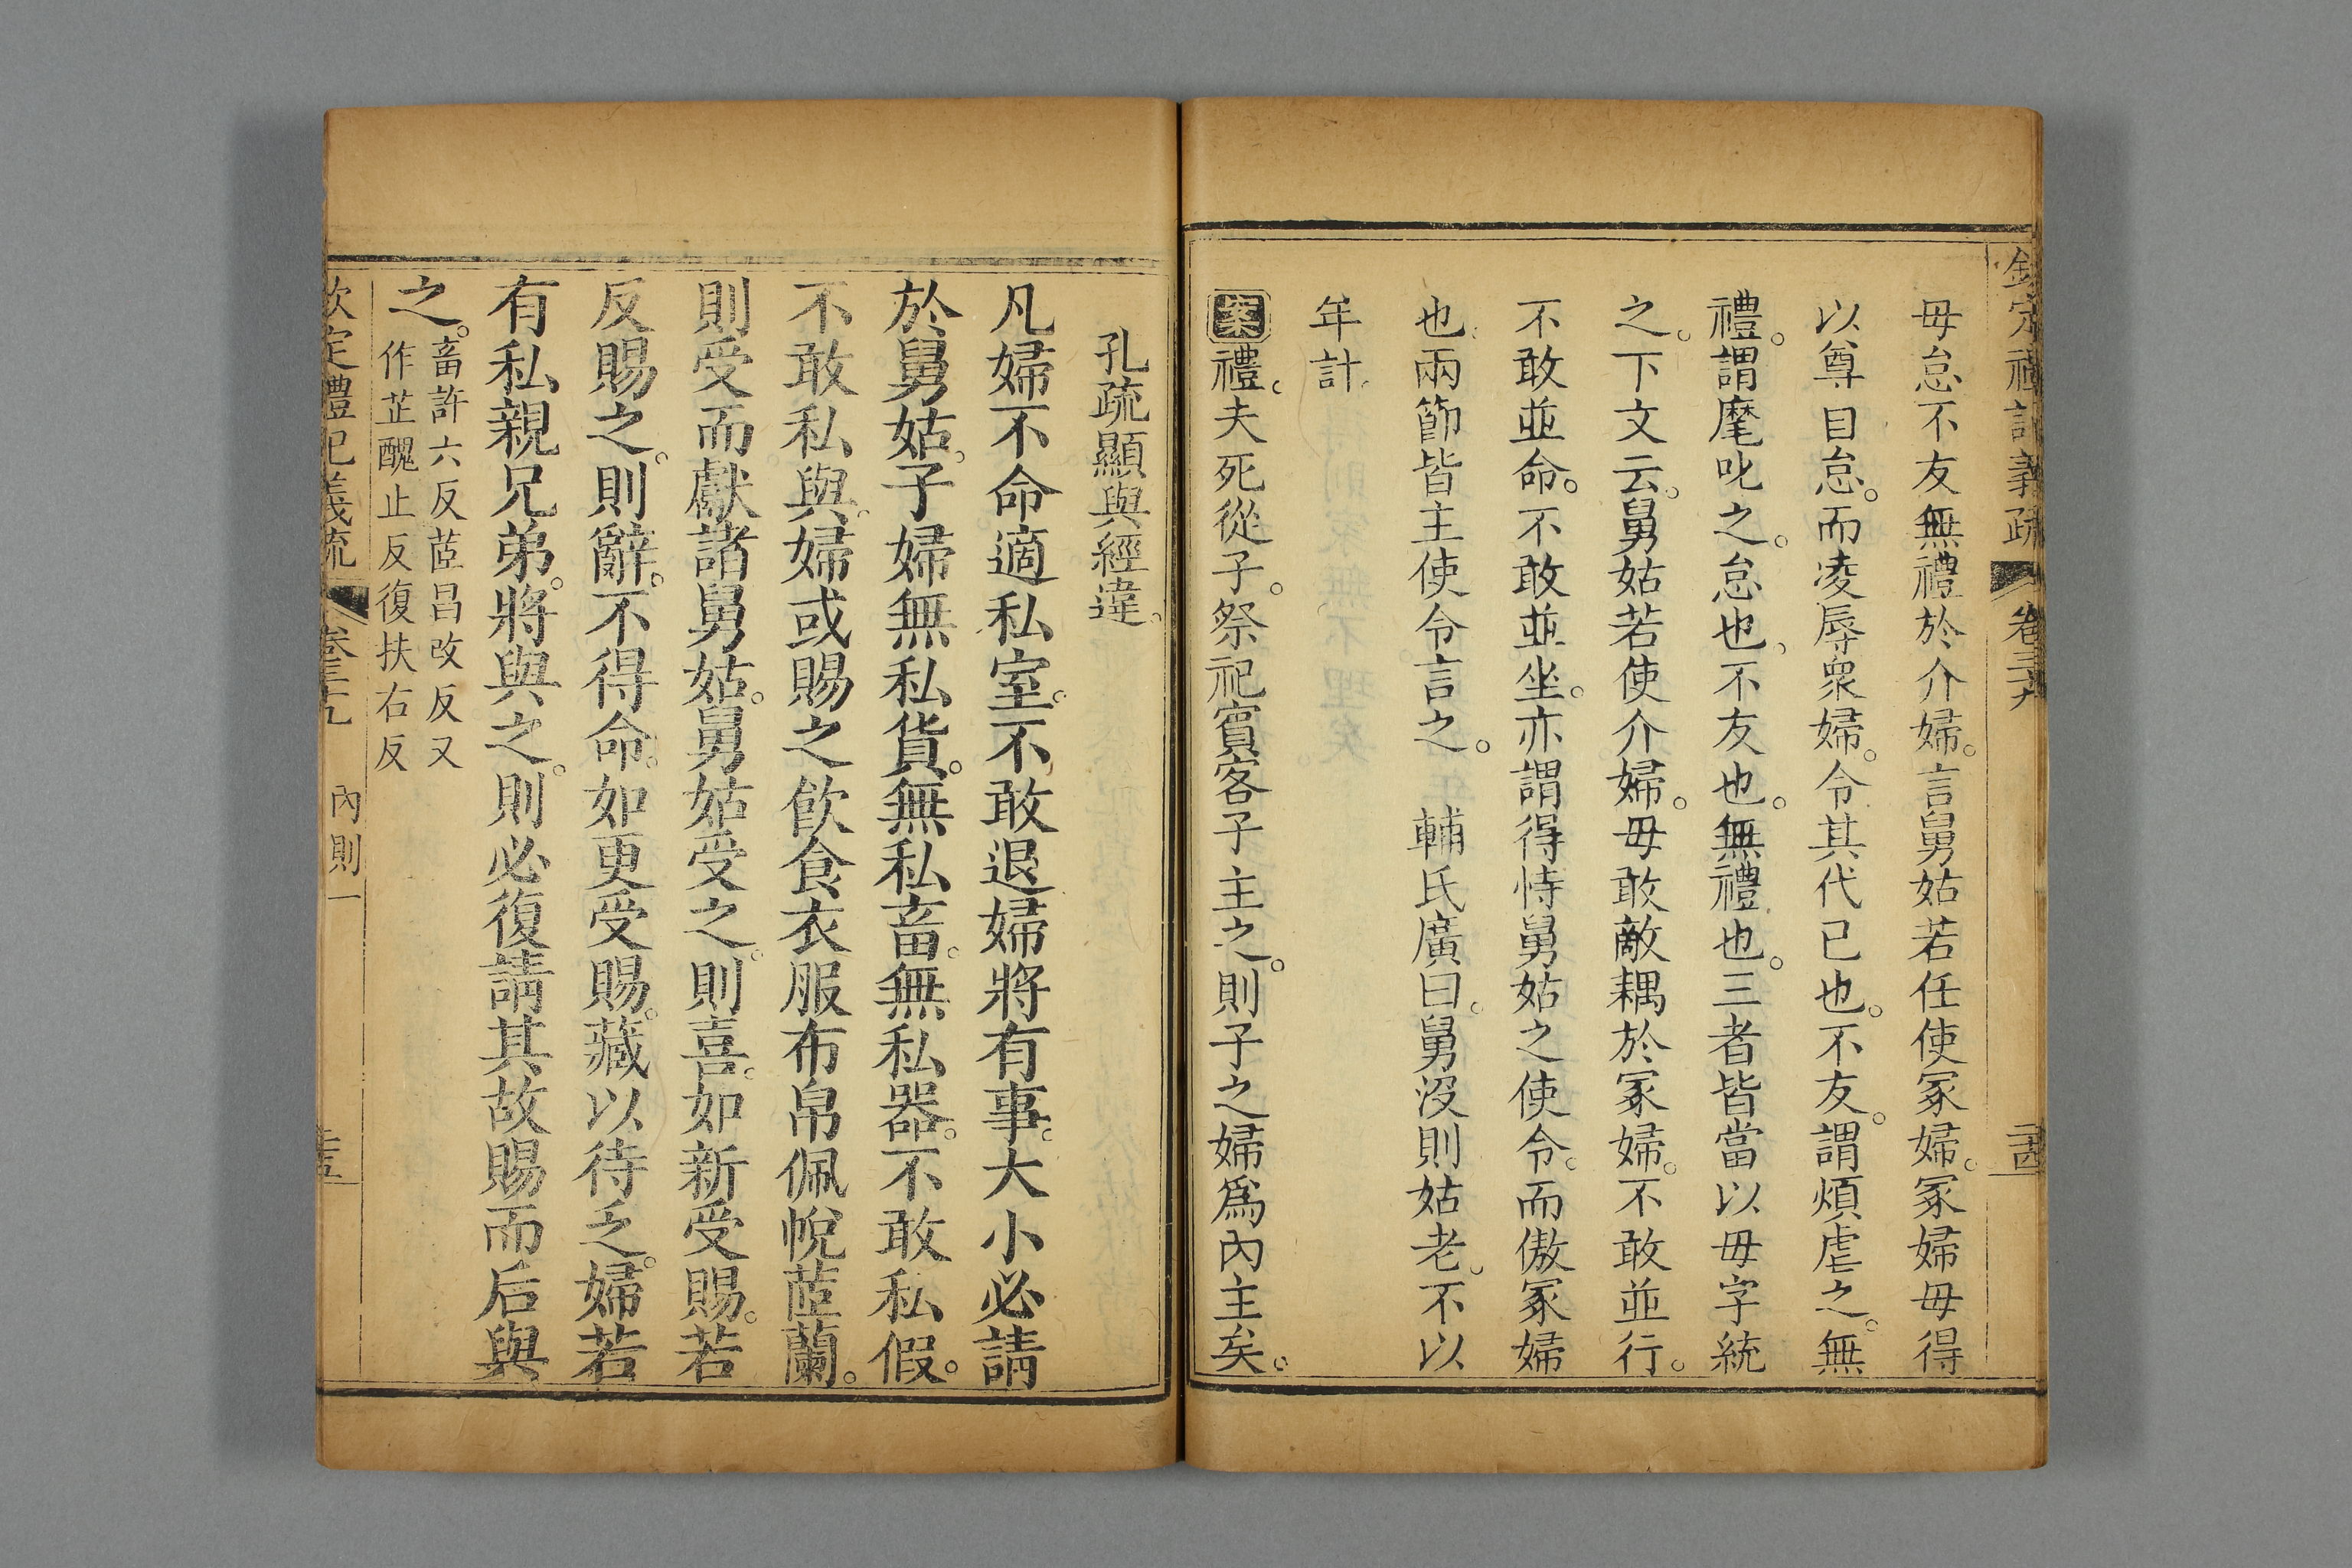 欽定禮記義疏 卷三十九 二十四
毋怠不友無禮於介婦。言舅姑若任使冢婦。冢婦毋得
以尊自怠。而凌辱衆婦。令其代已也。不友。謂煩虐之。無
禮。謂麾叱之。怠也、不友也。無禮也。三者皆當以毋字統
之。下文云。舅姑若使介婦。毋敢敵耦於冢婦。不敢並行。
不敢並命。不敢並坐。亦謂得恃舅姑之使令。而傲冢婦
也。兩節皆主使令言之。 輔氏廣曰。舅沒則姑老。不以
年計。
案禮。夫死從子。祭祀賓客子主之。則子之婦爲內主矣。
孔疏顯與經違。
凡婦不命適私室。不敢退婦將有事。大小必請
於舅姑。子婦無私貨。無私畜。無私器。不敢私假。
不敢私與。婦或賜之飮食衣服布帛佩帨茝蘭。
則受而獻諸舅姑。舅姑受之。則喜。如新受賜。若
反賜之。則辭。不得命。如更受賜。藏以待乏。婦若
有私親兄弟。將與之。則必復請其故賜而后與
之。畜許六反茝昌改反又
作芷醜止反復扶右反
欽定禮記義疏 卷三十九 內則一 二十五